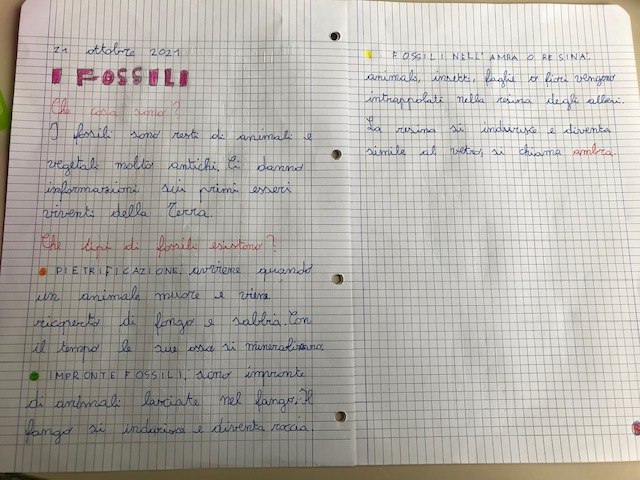 21 ottobre 2021
I FOSSILI
Che cosa sono?
I fossili sono resti di animali e
vegetali molto antichi. Ci danno
informazioni sui primi esseri
viventi della Terra.
Che tipi di fossili esistono?
PIETRIFICAZIONE: avviene quando
un animale muore e viene
ricoperto di fango e sabbia. Con
il tempo le sue ossa si mineralizzano.
IMPRONTE FOSSILI: sono impronte
di animali lasciate nel fango. Il
fango si indurisce e diventa roccia.
FOSSILI NELL'AMBRA O RESINA:
animali, insetti, foglie o fiori vengono
intrappolati nella resina degli alberi.
La resina si indurisce e diventa
simile al vetro, si chiama ambra.